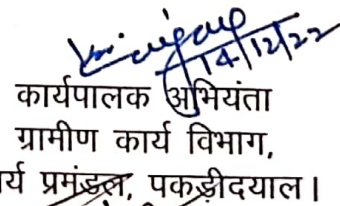 14/12/22
कार्यपालक अभियंता
ग्रामीण कार्य विभाग,
र्य प्रमंडल, पकड़ीदयाल।